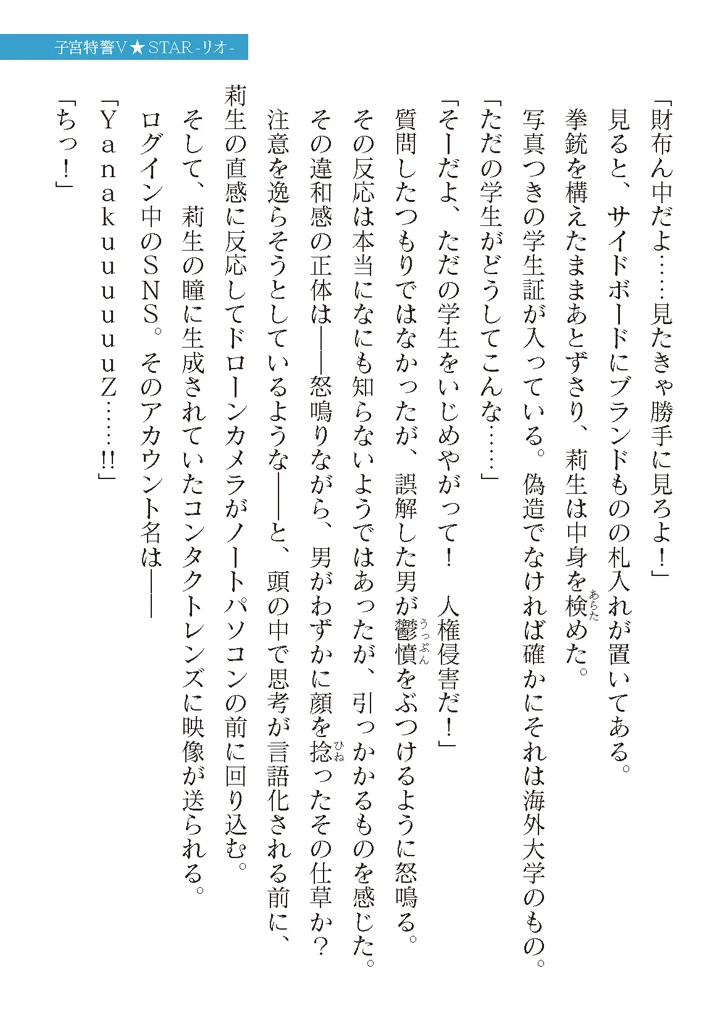 子宮特警V★STAR-リオ-
「財布ん中だよ……見たきゃ勝手に見ろよ！」
見ると、サイドボードにブランドものの札入れが置いてある。
拳銃を構えたままあとずさり、莉生は中身を検めた。
あらた
写真つきの学生証が入っている。偽造でなければ確かにそれは海外大学のもの。
「ただの学生がどうしてこんな……」
「そーだよ、ただの学生をいじめやがって！　人権侵害だ！」
質問したつもりではなかったが、誤解した男が鬱憤をぶつけるように怒鳴る。
うっぷん
その反応は本当になにも知らないようではあったが、引っかかるものを感じた。
その違和感の正体は――怒鳴りながら、男がわずかに顔を捻ったその仕草か？
ひね
注意を逸らそうとしているような――と、頭の中で思考が言語化される前に、
莉生の直感に反応してドローンカメラがノートパソコンの前に回り込む。
そして、莉生の瞳に生成されていたコンタクトレンズに映像が送られる。
ログイン中のSNS。そのアカウント名は――
「YanakuuuuuuZ……!!」
「ちっ！」